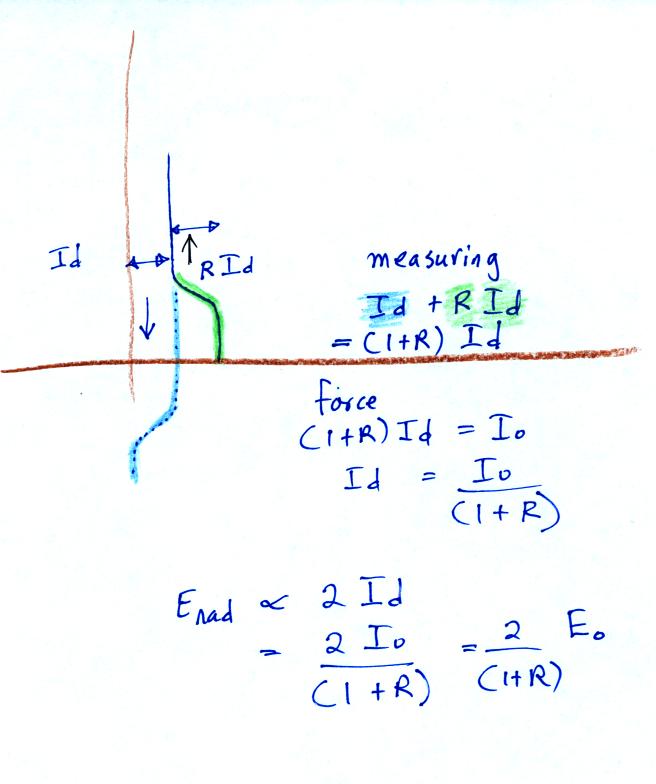 Id
R Id
measuring
Id + R Id
= (1+R) Id
force
(1+R) Id = I₀
Id = I₀ / (1+R)
E_rad ∝ 2 Id
= 2 I₀ / (1+R) = 2 / (1+R) E₀